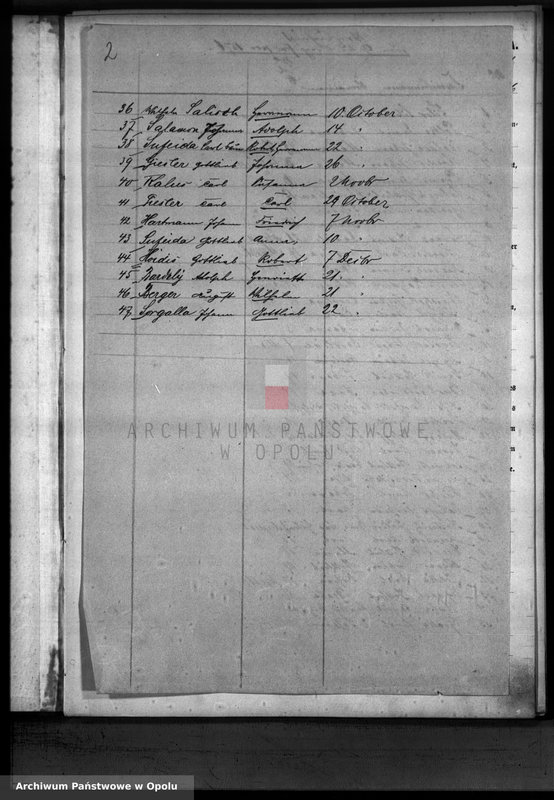 2
36 Wilhelm Salisch Herrmann 10. October
37 Salamon Johann Adolph 14 "
38 Sufeida Carl Robert Herrmann 22 "
39 Giesler Gottlieb Johanna 26 "
40 Kalus Carl Susanna 2 Novbr
41 Giesler Carl Carl 29 October
42 Hartmann Johann Friedrich 7 Novbr
43 Sufeida Gottlieb Anna 10 "
44 Gottlieb Robert 7 Decbr
45 Adolph Henriett 21 "
46 Berger August Wilhelm 21 "
47 Gorgalla Johann Gottlieb 22 "
ARCHIWUM PAŃSTWOWE
W OPOLU
Archiwum Państwowe w Opolu